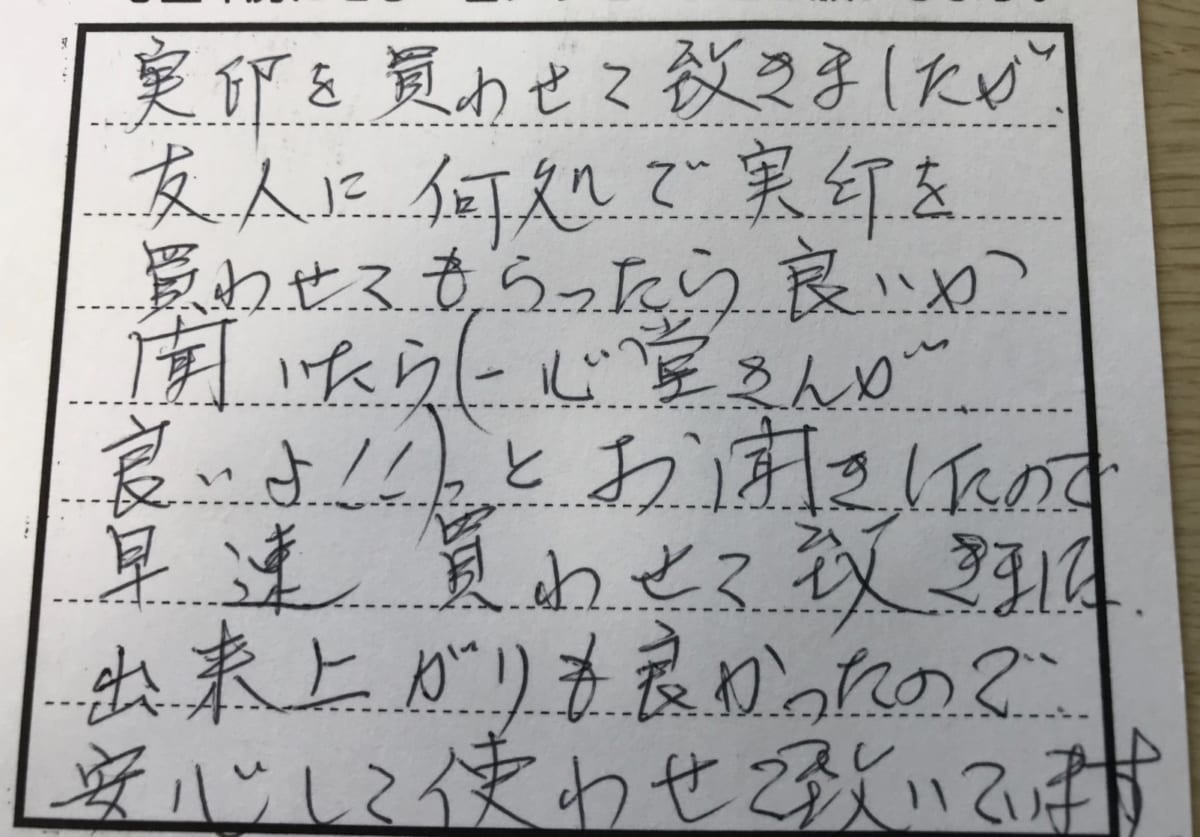 実印を買わせて致きましたが、
友人に何処で実印を
買わせてもらったら良いか
聞いたら(一心堂さんが、
良いよ!!)っとお聞きしたので
早速買わせて致きました.
出来上がりも良かったので、
安心して使わせて致いています